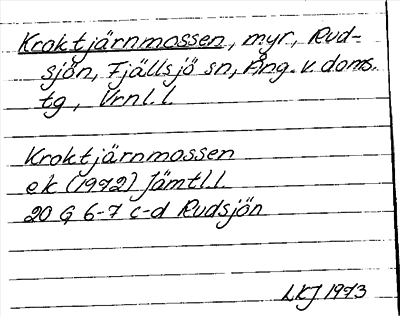 Kroktjärnmossen, myr, Rud-
sjön, Fjällsjö sn, Ång. v. doms.
tg, Vrnl. l.
Kroktjärnmossen
ek (1972) Jämtl. l.
20 G 6-7 c-d Rudsjön
LKJ 1973